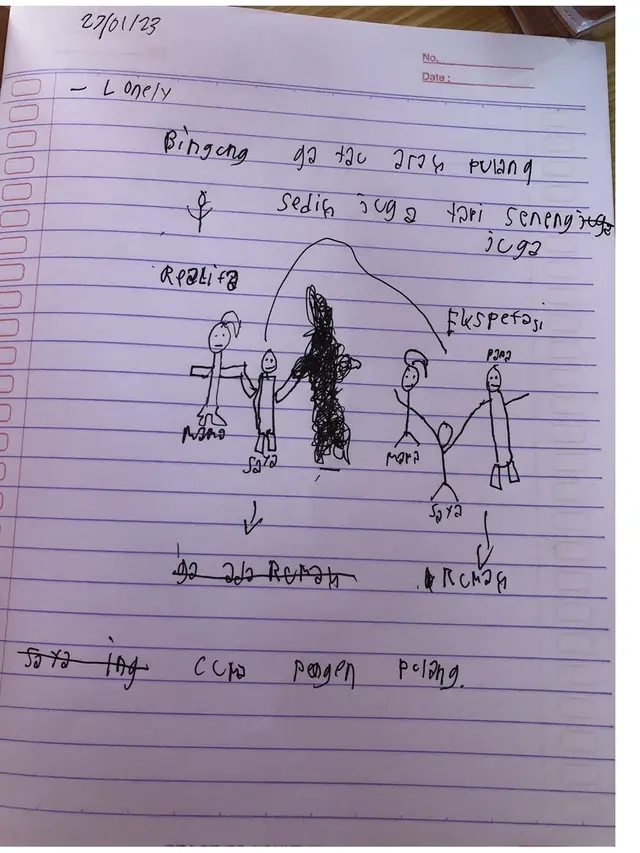 27/01/23
No.
Date :
- Lonely
Bingung ga tau arah pulang
sedih juga tapi seneng juga
juga
Realita
Ekspetasi
PAPA
MAMA
MAMA
SAYA
SAYA
ga ada RUMAH
RUMAH
SAYA ing cuma pengen pulang.